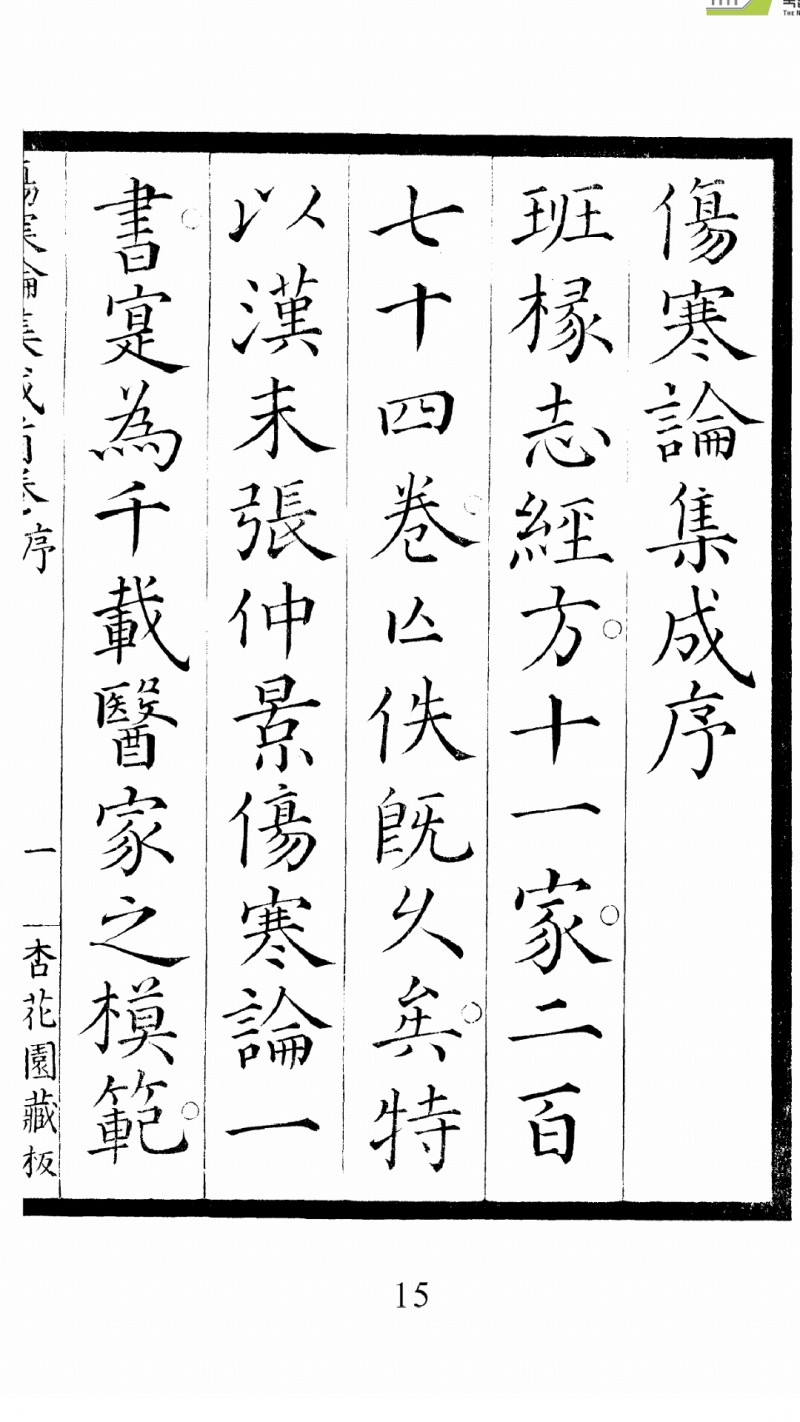 傷寒論集成序
班椽志經方。十一家。二百
七十四卷。亾佚既久矣。特
以漢末張仲景傷寒論一
書。寔為千載醫家之模範。
傷寒論集成首卷 序 一 杏花園藏板
15